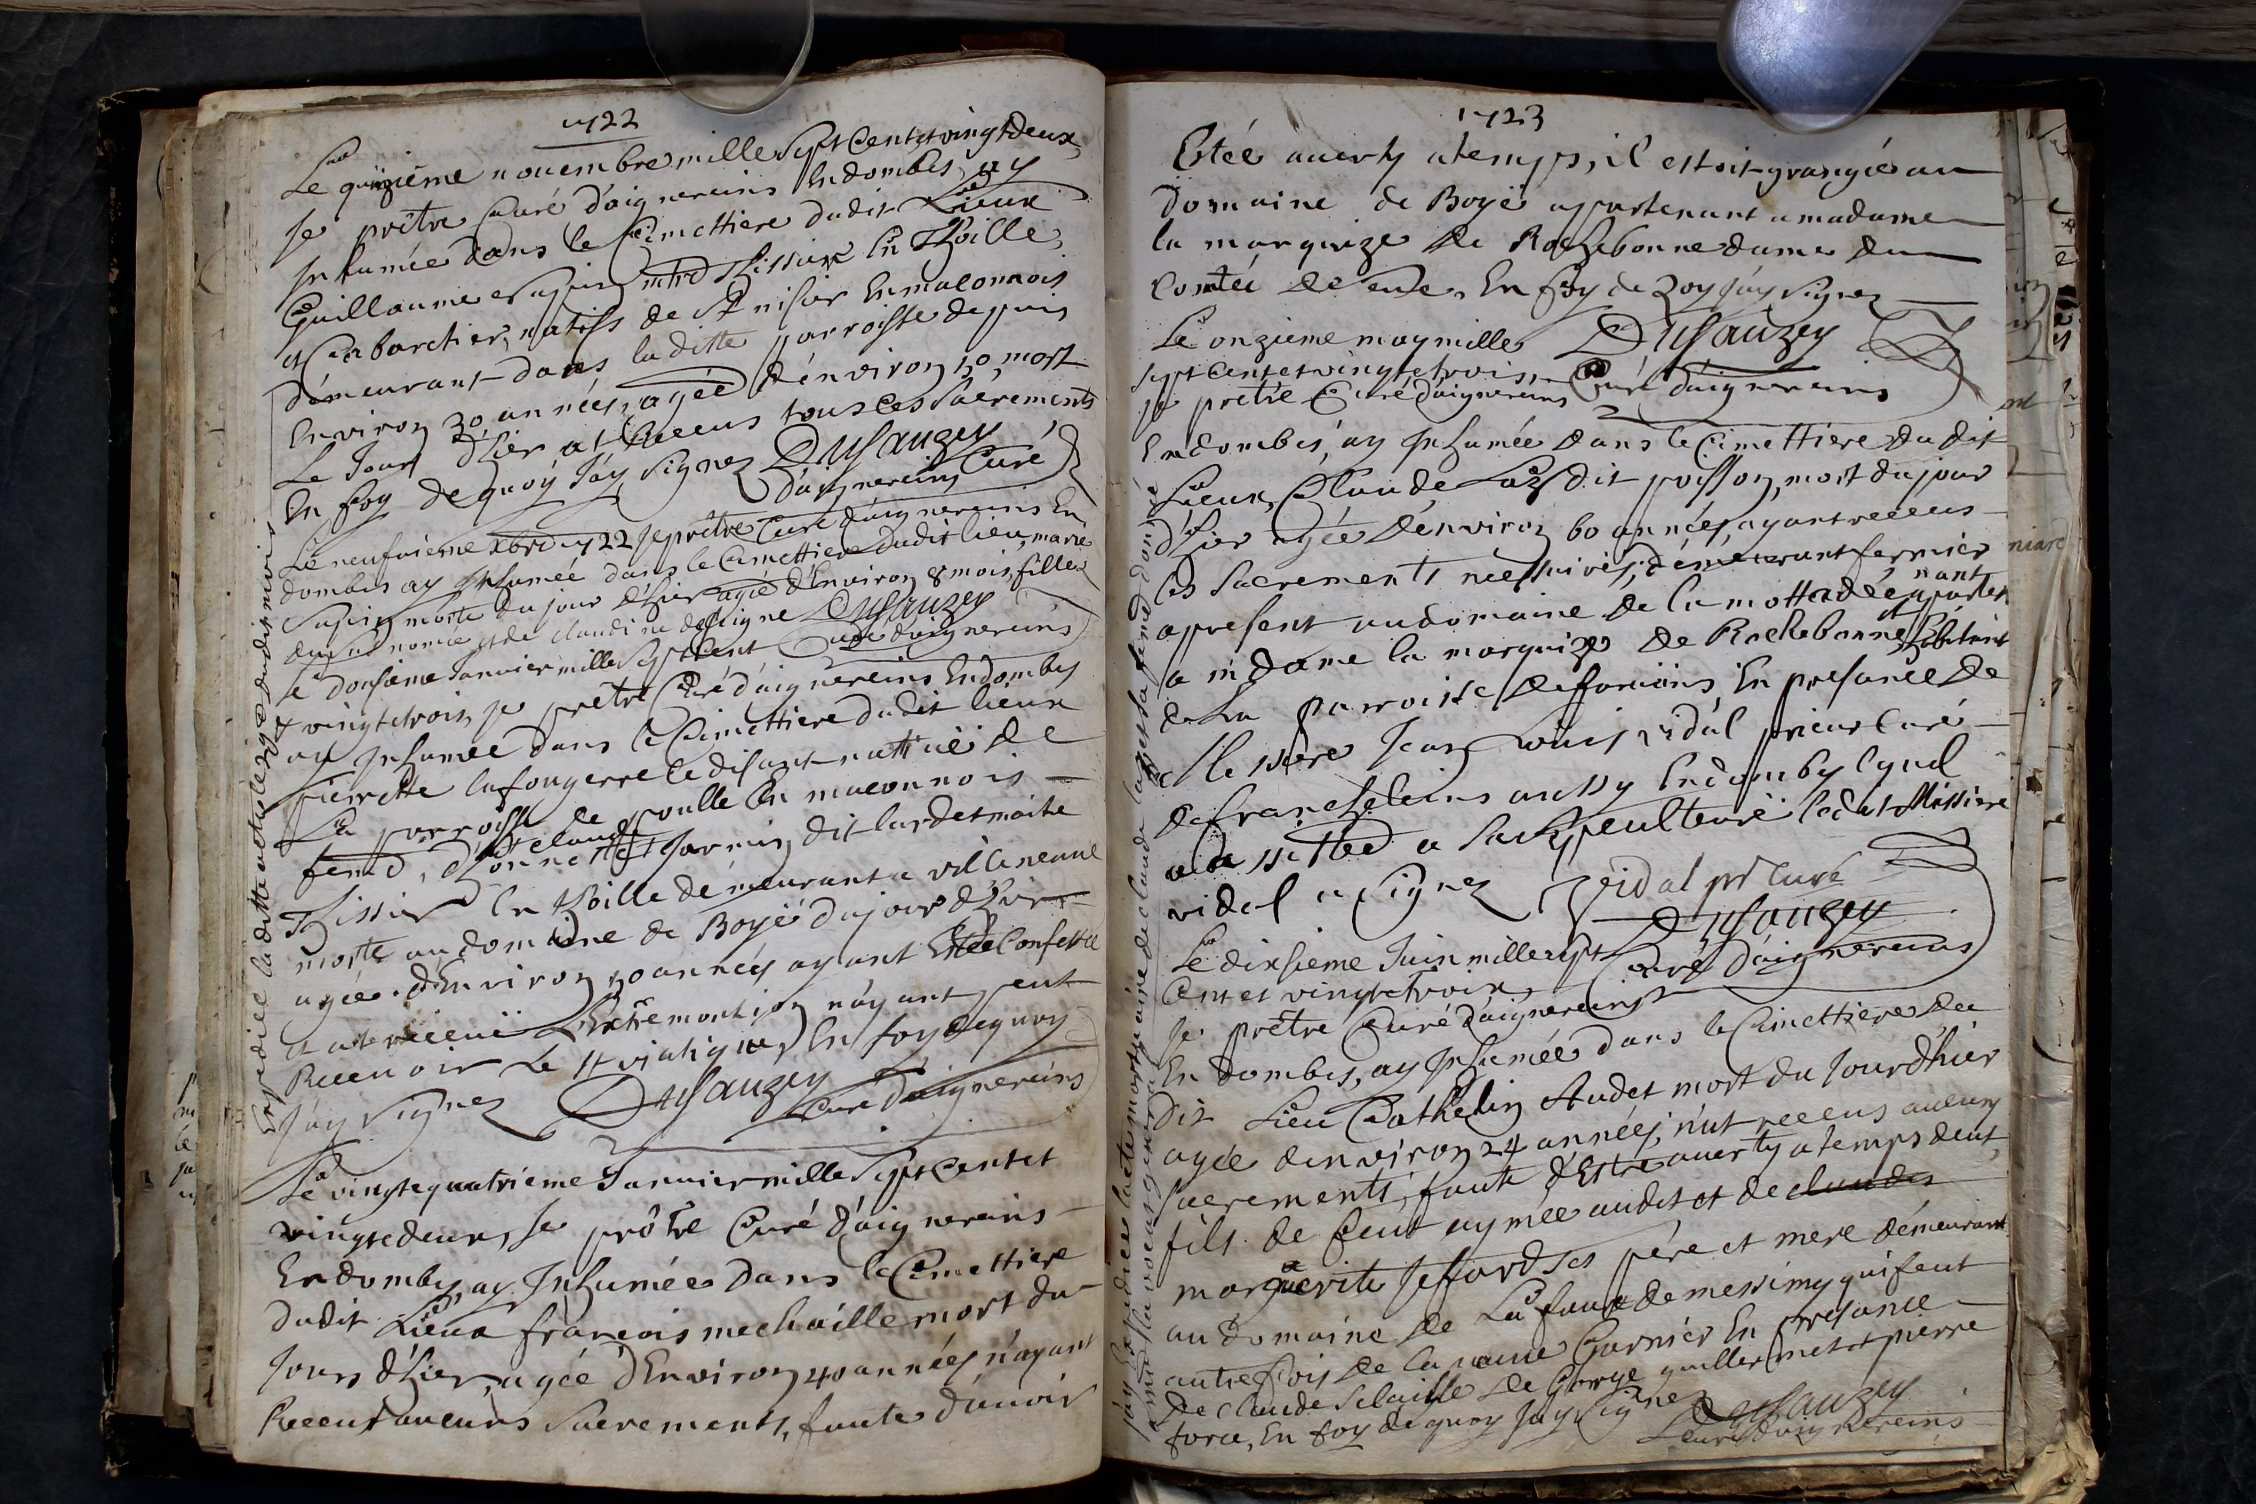 1722
Le quinzième nouembre mille sept Cent et vingt deux,
Je prêtre Curé d'aignereins En dombes, ay
Inhumée dans le Cimettiere dudit Lieux
Guillaume mtre tissier En thoille
et Cabarctier, natifs de St nisier En maconnois
démeurant dans la ditte parroisse depuis
Environ 30 années, agée d'environ 50, mort
Le Jour d'hier at Receus tous les sacrements
En foy de quoy J'ay signez Dusauzey
d'aignereins Curé
Le neufuieme Xbre 1722 Je prêtre Curé d'aignereins En
dombes ay Inhumée dans le Cimettiere dudit lieu, marie
morte du jour d'hier agée d'Environ 8 mois, fille
et de claudine Dusauzey
Curé d'aignereins
Le dousieme Januier mille sept Cent
et vingtetrois, Je prêtre Curé d'aignereins En dombes
ay Inhumée dans le Cimettiere dudit lieux
pierrette lafougerre se disant nattiue de
La parroisse de poulle En maconnois
feme d'honnette claude Jarnin, dit
tissier En thoille démeurant a villeneuue
morte au domaine de Boyé du jour d'hier
agée d'Environ 50 années ayant Estée Confessée
et at reçeuë L'Extremontion n'ayant peut
Receuoir Le st viatique, En foy de quoy
J'ay signez Dusauzey
Curé D'aignereins
Le vingtequatrieme Januier mille sept Cent et
vingtedeux, Je prôtre Curé d'aignereins
En dombes, ay Inhumée dans le Cimettiere
dudit Lieux françois mechaille mort du
Jours d'hier, agée d'Environ 40 années n'ayant
Receus aucuns sacrements, faute d'auoir
Expediée la ditte
1723
Estée auerty a temps, il estoit grangié au
domaine de Boyé appartenant a madame
la marquize de Rochebonne dame du
Comtée de En foy de quoy J'ay signez
Dusauzey
Curé d'aignereins
Le onzieme may mille
sept cent et vingtetrois,
Je prêtre Curé d'aignereins
En dombes, ay Inhumée dans le Cimettiere du dit
Lieux, Claude dit poisson, mort du jour
d'hier agée d'environ 60 années, ayant receus
les sacrements nessairés, démeurant fermier
apresent au domaine de la motte apartenant
a mdame la marquize de Rochebonne
de La parroisse de fareins, En presance de
Messire Jean Louis vidal prieur Curé
de francheleins aussy En domby lequel
a assistée a sa sepeulteure ledit Messire
vidal a signez Vidal pr Curé
Dusauzey
Curé D'aignereins
Le dixsieme Juin mille sept
Cent et vingtetrois,
Je prêtre Curé d'aignereins
En dombes, ay Inhumée dans le Cimettiere du
dit Lieu Cathelin Audet mort du Jour d'hier
agée d'environ 24 années, n'at receus aucuns
sacrements, faute d'Estre auerty a temps
fils de feut aymée audet et de claudes
marguerite Jeffard ses père et mere démeurant
au domaine de La de messimy qui feut
autrefois de la Garnier En presance
De claude de George guillermet et pierre
fore, En foy de quoy J'ay signez
Dusauzey
Curé d'aignereins
J'ay Expediée l'acte mortuaire de claude